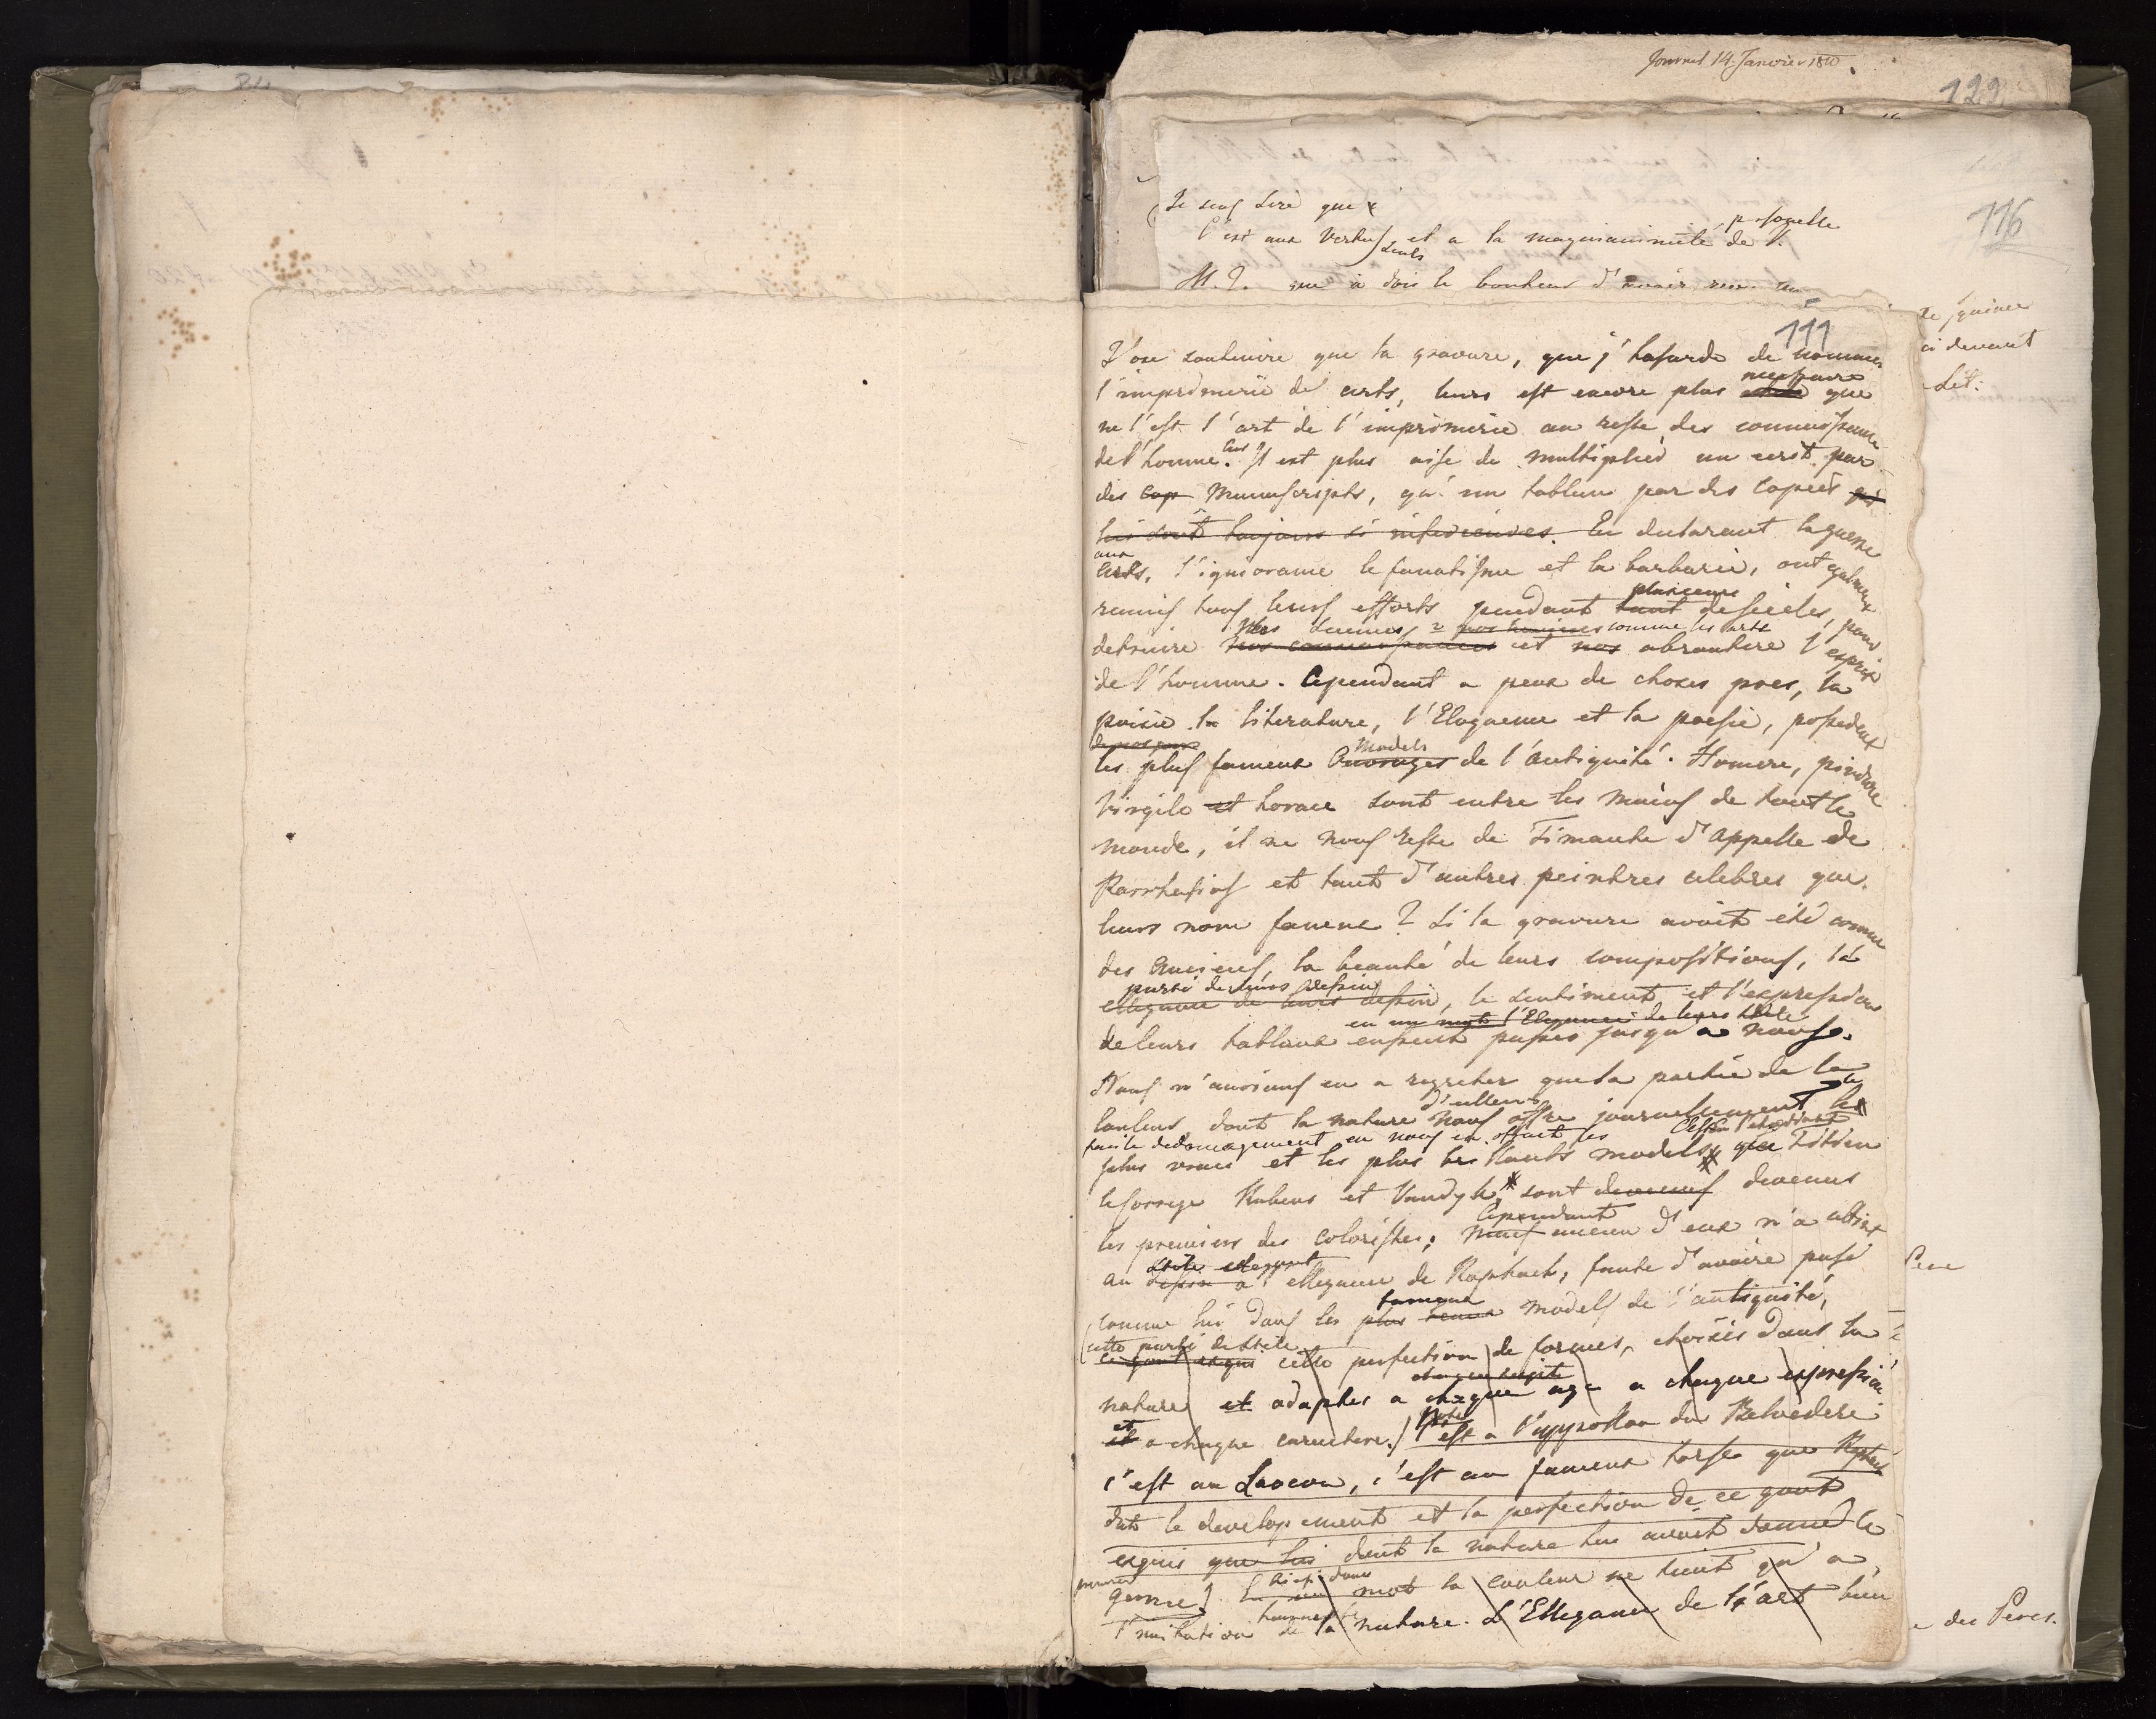 Journel 14. Janvier 18
122
116
Je
que
C'est aux Vertus seuls et a la magnanimité de V.
M. I. que à dois le bonheur d'
ci devant
111
J'ose soutenire que la gravure, que j'hasarde de nommer
l'imprimerie des arts, leurs est encore plus necessaire que
ne l'est l'art de l'imprimerie au reste des connaissance
de l'homme. Il est plus aisé de multiplier un ecrit par
des cop Manuscripts, qu'un tableau par des Copies qui
lui sont toujours si inferieures. En declarant la guerre
aux arts, l'ignorance le fanatisme et la barbarie, ont egalement
reunis tous leurs efforts pendant tant plusieurs de siecles, pour
detruire nos connaissances comme les arts et nos abroutire l'esprit
de l'homme. Cependant a peux de choses pres, la
poisie la literature, l'Eloquence et la poesie, possedent
les plus fameux Ouvrages models de l'antiquité. Homere, pindare
Virgile et horace sont entre les mains de tout le
monde, il ne nous reste de Timante d'Appelle de
Parrhasius et tant d'autres peintres celebres que
leurs nom fameux? Si la gravure avoit été connue
des Anciens, la beauté de leurs compositions, la
purté de leurs dessin
ellegance de leurs dessin, le sentiment et l'expression
en un mot l'Elegance de leurs stile
de leurs tableaux eussent passes jusqu'a nous.
Nous n'aurions eu a regretter que la partie de la
couleur dont la nature d'ailleurs nous offre journellement les
dedomagement en nous en offrant les
plus vraies et les plus brillants models que Titien
le Correge Rubens et Vandyk, sont devenus devenus
les premiers des coloristes; mais Cependant aucun d'eux n'a atteint
au dessin stile elegant a ellegance de Raphael, faute d'avoire puisé
comme lui dans les plus beaux fameux models de l'antiquité,
cette purté de stile
ce gout exquis cette perfection de formes, choisies dans la
nature et adaptes a chaque age a chaque expression
et a chaque caractere. C'est a l'appollon du Belvedere
c'est au Laocon, c'est au fameux torse que Raphael
doit le developement et la perfection de ce gout
exquis que lui dont la nature lui avoit donné le
premier germe. En un mot la couleur ne tient qu'a
l'imitation de la nature. L'Ellegance de l'art bien
des Peres.